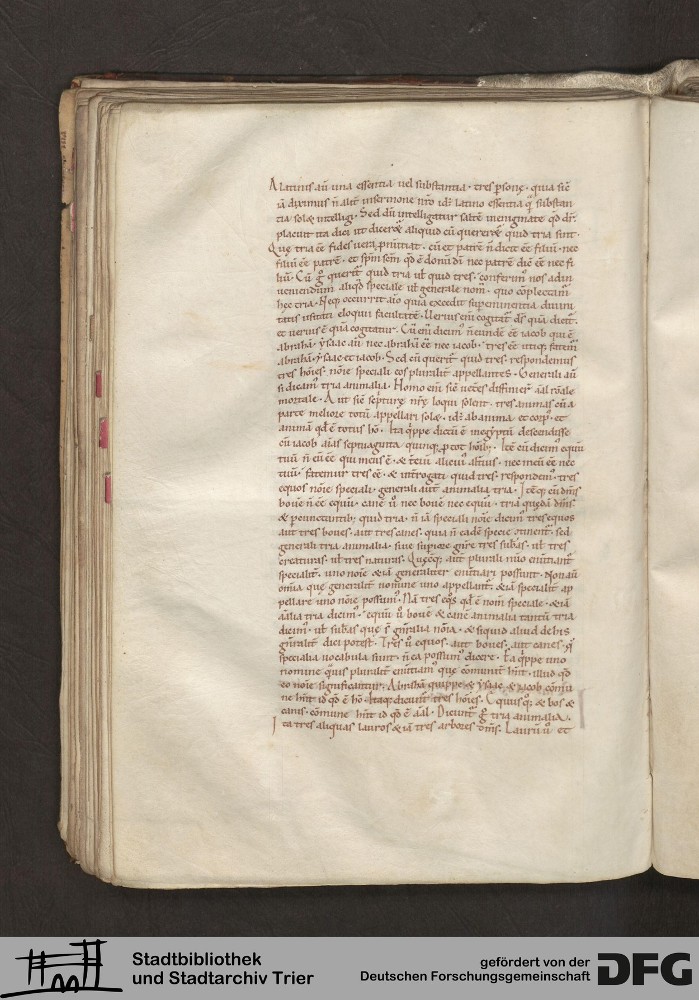 A latinis aū una essentia uel substantia · tres p̄sonę · quia sic̄
iā diximus n̄ alit̄ in sermone nr̄o idē latino essentia q̄ substan
tia solæ intelligi · Sed dū intelligatur saltē in enigmate qd̄ dr̄ ·
placuit ita dici ut dicerēt aliquid cū quererēt quid tria sint ·
Quę tria ēē fides uera p̄nūtiat · cū et patrē n̄ dicit ēē filiū · nec
filiū ēē patrē · et sp̄m scm̄ qd̄ ē donū dī nec patrē dic̄ ēē nec fi
liū · Cū g° querit̄ quid tria ul̄ quid tres · conferim̄ nos ad in
ueniendum aliqd̄ speciale ul̄ generale nom̄ · quo cōplectam̄
hec tria · Neq; occurrit aīo quia excedit sup̄eminentia diuini
tatis usitati eloquii facultatē · Uerius enī cogitat̄ ds̄ quā dicit̄ ·
et uerius ē quā cogitatur · Cū enī dicim̄ n̄ eundē ēē iacob qui ē
abrahā · ysaac aū nec abrahā ēē nec iacob · tres ēē utiq; fatem̄
abrahā · ysaac et iacob · Sed cū querit̄ quid tres · respondemus
tres hōies · nōie speciali eos pluralit̄ appellantes · Generali aū
si dicam̄ tria animalia · Homo enī sic̄ uet̄es diffinier̄ aīal rōale
mortale · Aut sic̄ scripturę nrę loqui solent · tres animas cū a
parte meliore totū appellari solæ · idē ab anima et corp̄ · et
animā qd̄ ē totus hō · Ita q̄ppe dictū ē in egyptū descendisse
cū iacob aīas septuaginta quinq; p̄ tot hōib; · Itē cū dicim̄ equū
tuū n̄ eū ēē qui meus ē · & t̄ciū alicui° alt̄ius · nec meū ēē nec
tuū · fatemur tres ēē · & int̄rogati quid tres · respondem̄ · tres
equos nōie speciali · generali aut̄ animalia tria · Itēq; cū dīm̄s
bouē n̄ ēē equū · canē ū nec bouē nec equū · tria quędā dīm̄s ·
& p̄cunctantib; quid tria · n̄ iā speciali nōie dicim̄ tres equos
aut tres boues · aut tres canes · quia n̄ eadē specie 9tinent̄ · sed
generali tria animalia · siue sup̄iore gn̄re tres subas̄ · ul̄ tres
creaturas · ul̄ tres naturas · Quęcūq; aut̄ plurali nūo enūtiant̄
specialit̄ · uno nōie & iā generaliter enūtiari possunt · Non aū
om̄ia que generalit̄ nomine uno appellant̄ · & iā specialit̄ ap
pellare uno nōie possum̄ · Nā tres eq̄s qd̄ ē nom̄ speciale · & iā
aīalia tria dicim̄ · equū ū bouē & canē animalia tantū tria
dicim̄ · ul̄ subas̄ que s̄ gn̄ralia nōia · & siquid aliud de his
gn̄ralit̄ dici potest · Tres ū equos · aut boues · aut canes · q̄
specialia uocabula sunt n̄ ea possum̄ dicere · Ea q̄ppe uno
nomine q̄uis pluralit̄ enūtiam̄ que cōmunit̄ hn̄t · illud qd̄
eo nōie significantur · Abrahā quippe & ysaac & iacob cōmu
ne hn̄t id qd̄ ē hō · Itaq; dicunt̄ tres hōies · Equus q; & bos &
canis · cōmune hn̄t id qd̄ ē aīal · Dicunt̄ g° tria animalia ·
Ita tres aliquas lauros & iā tres arbores dīm̄s · Laurū ū et
Stadtbibliothek
und Stadtarchiv Trier
gefördert von der
Deutschen Forschungsgemeinschaft
DFG